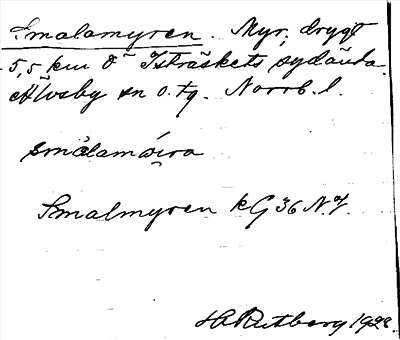 Smalamyren. Myr, drygt
5,5 km O Isträskets sydända.
Älvsby sn o. tg. Norrb. l.
smålamöira
Smalmyren kG 36 N.V.
H. Rutberg 1928